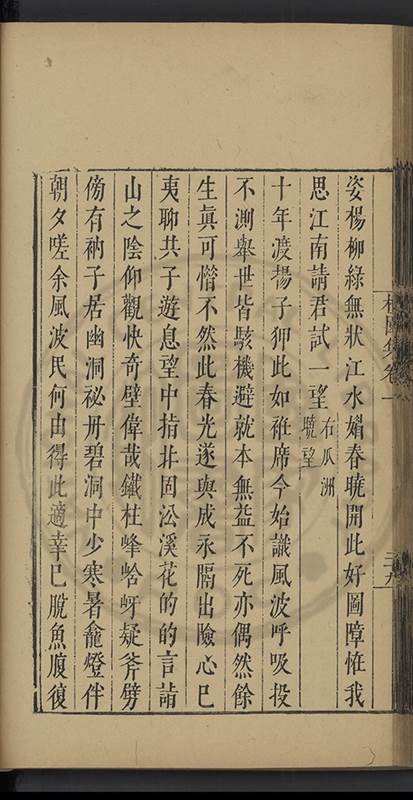 姿楊柳綠無狀江水媚春曉開此好圖障恠我
思江南請君試一望右瓜洲
曉望
十年渡揚子狎此如袵席今始識風波呼吸投
不測舉世皆駭機避就本無益不死亦偶然餘
生眞可惜不然此春光遂與成永隔出險心已
夷聊共子遊息望中指北固沿溪花的的言詣
山之陰仰觀快奇壁偉哉鐵柱峰峆岈疑斧劈
傍有衲子居幽洞祕丹碧洞中少寒暑龕燈伴
朝夕嗟余風波民何由得此適幸巳脫魚腹復